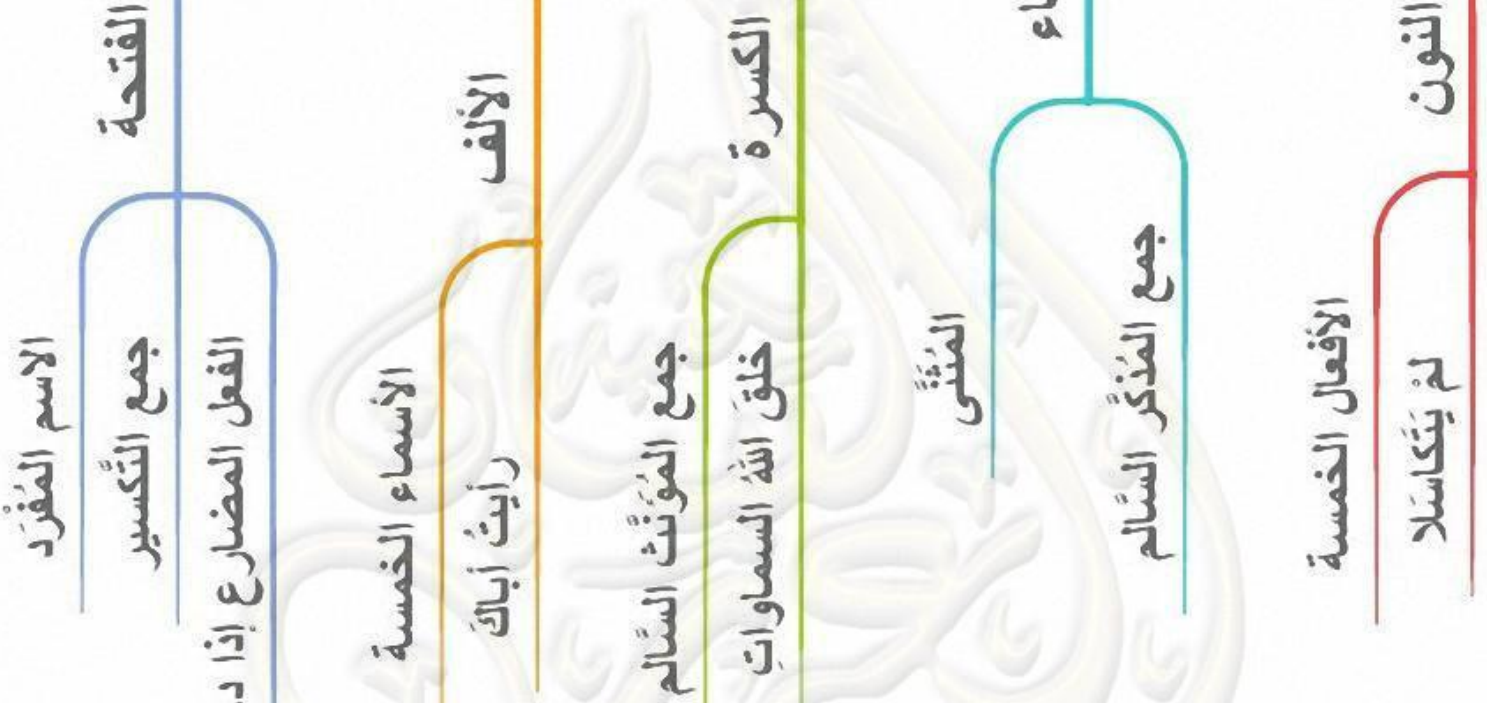 الفتحة
الاسم المُفْرَد
جمع التَّكسير
الفعل المضارع إذا
الألف
الأسماء الخمسة
رأيتُ أباكَ
الكسرة
جمع المُؤَنَّث السَّالم
خلقَ اللهُ السماواتِ
المُثَنَّى
جمع المُذكَّر السَّالم
النون
الأفعال الخمسة
لمْ يَتَكاسَلا